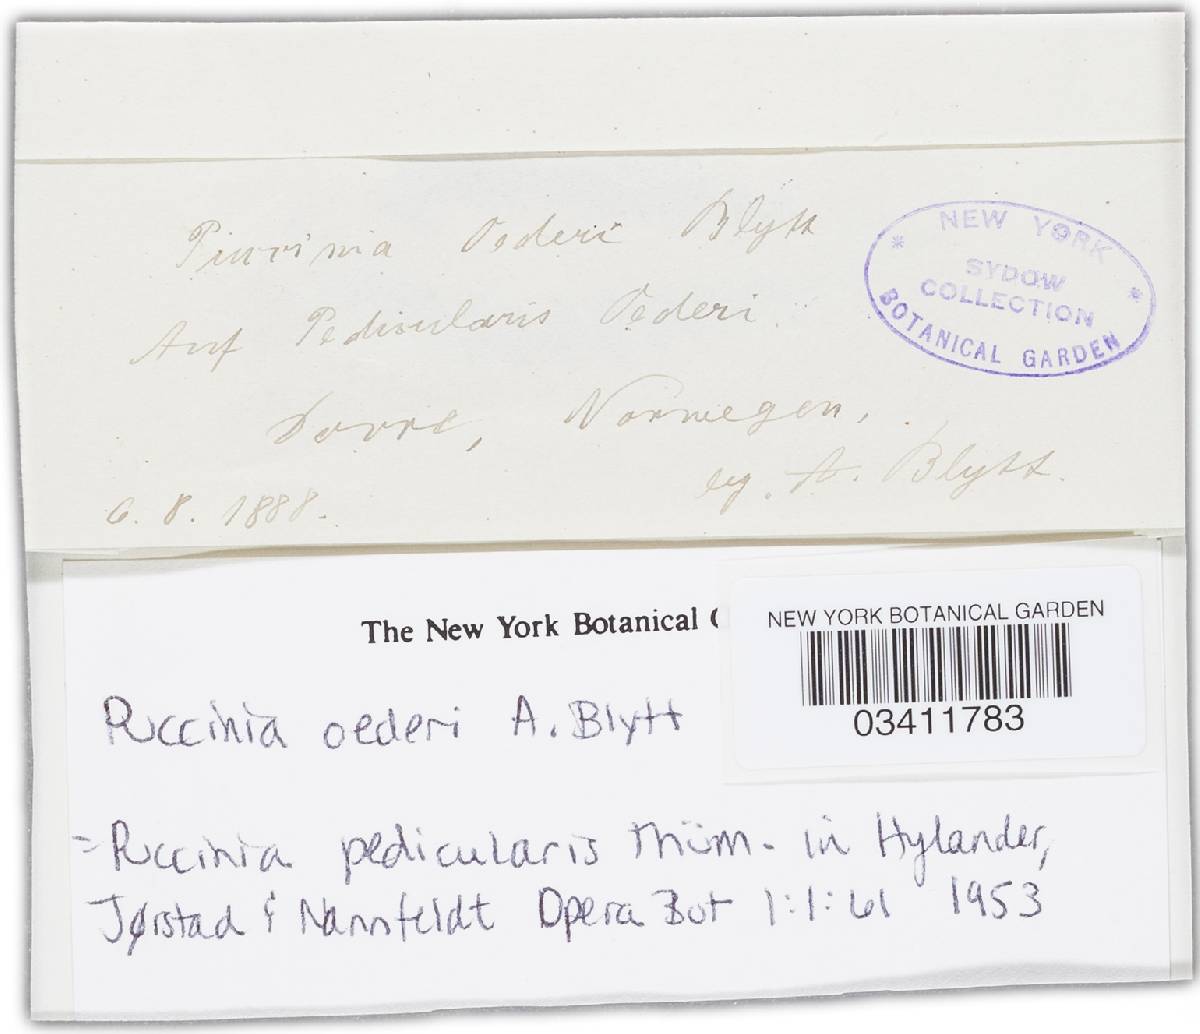 Puccinia Oederi Blytt
Auf Pedicularis Oederi.
Dovre, Norwegen,
leg. A. Blytt.
6. 8. 1888.
NEW YORK
SYDOW
COLLECTION
BOTANICAL GARDEN
The New York Botanical
NEW YORK BOTANICAL GARDEN
03411783
Puccinia oederi A. Blytt
= Puccinia pedicularis Thüm. in Hylander,
Jørstad & Nannfeldt Opera Bot 1:1:61 1953